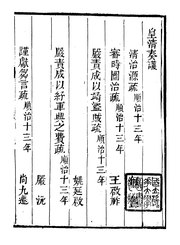 皇清奏議
清治源疏順治十三年
審時圖治疏順治十三年
王啟祚
嚴責成以靖盜賊疏順治十三年
嚴責成以紓軍興之費疏順治十三年
姚延啟
嚴沆
謹獻芻言疏順治十三年
尚九遷